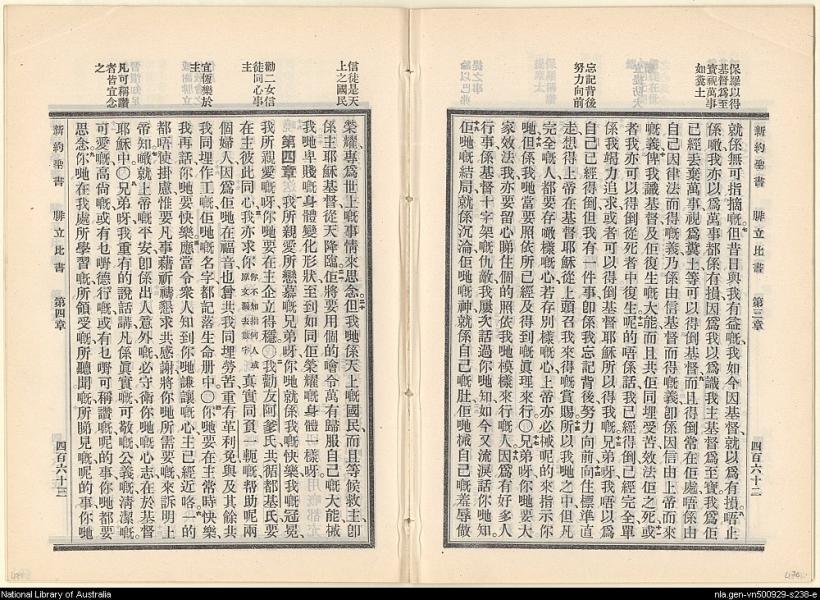 保羅以得
基督爲至
寶視萬事
如糞土
忘記背後
努力向前
新約聖書 腓立比書 第三章 四百六十二
就係無可指摘嘅但昔日與我有益嘅我如今因基督就以爲有損唔止
係噉我亦以爲萬事都係有損因爲我以爲識我主基督爲至寶我爲佢
已經丟棄萬事視爲糞土等可以得倒基督而且得倒常在佢處唔係由
自己因律法而得嘅義乃係由信基督而得嘅義卽係因信由上帝而來
嘅義俾我識基督及佢復生嘅大能而且共佢同埋受苦效法佢之死或
者我亦可以得倒從死者中復生呢的唔係話我已經得倒已經完全單
係我竭力追求或者可以得倒基督耶穌所以得倒我嘅兄弟呀我唔以爲
自己已經得倒但我有一件事卽係我忘記背後努力向前向住標準直
走想得上帝在基督耶穌從上頭召我來得嘅賞賜所以我哋之中但凡
完全嘅人都要存噉樣嘅心若存別樣嘅心上帝亦必將呢的來指示你
哋但係我哋當要照依所已經及得到嘅眞理來行〇兄弟呀你哋要大
家效法我亦要留心睇住個的照依我哋模樣來行嘅人因爲有好多人
行事係基督十字架嘅仇敵我屢次話過你哋知如今又流淚話你哋知
佢哋嘅結局就係沉淪佢哋嘅神就係自己嘅肚佢哋將自己嘅羞辱做
信徒是天
上之國民
勸二女信
徒同心事
主
宜恆樂於
主
凡可稱讚
者皆宜念
之
榮耀專爲世上嘅事情來思念但我哋係天上嘅國民而且等候救主卽
係主耶穌基督從天降臨佢將要用個的噲令萬有歸服自己嘅大能械
我哋卑賤嘅身體變化形狀至到如同佢榮耀嘅身體一樣呀
第四章 我所親愛所戀慕嘅兄弟呀你哋就係我嘅快樂我嘅冠冕
我所親愛嘅呀你哋要在主企立得穩〇我勸友阿爹氏共循都基氏要
在主彼此同心我亦求你 眞實同負一軛嘅幫助呢兩
個婦人因爲佢哋在福音也曾共我同埋勞苦重有革利免與及其餘共
我同埋作工嘅佢哋嘅名字都記落生命册中〇你哋要在主常時快樂
我再話你哋要快樂應當令衆人知到你哋謙讓嘅心主已經近咯一的
都唔使掛慮惟要凡事藉祈禱懇求共感謝將你哋所需要嘅來訴明上
帝知噉就上帝嘅平安卽係出人意外嘅必守衛你哋嘅心志在於基督
耶穌中〇兄弟呀我重有的說話講凡係眞實嘅可敬嘅公義嘅淸潔嘅
可愛嘅高尙嘅或有乜嘢德行嘅或有乜嘢可稱讚嘅呢的事你哋都要
思念你哋在我處所學習嘅所領受嘅所聽聞嘅所睇見嘅呢的事你哋
新約聖書 腓立比書 第四章 四百六十三
National Library of Australia
nla.gen-vn500929-s238-e